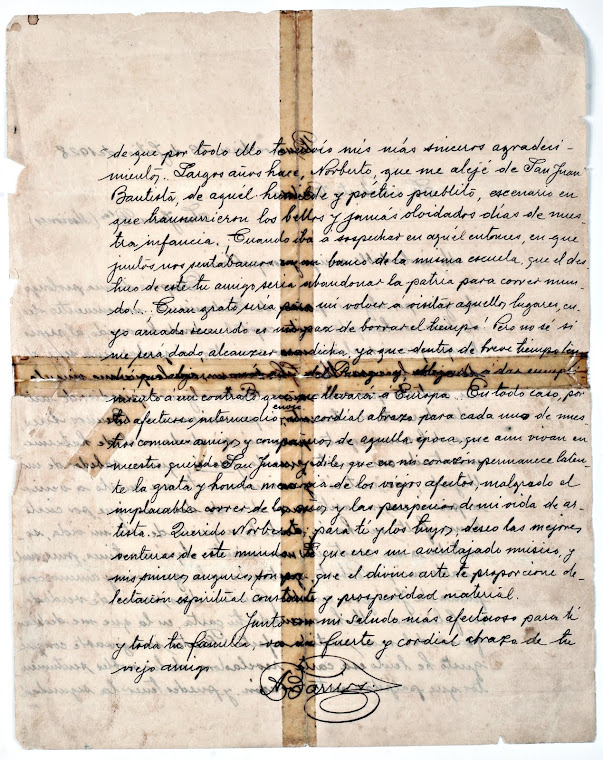 de que por todo ello te envío mis más sinceros agradeci-
mientos. Largos años hace, Norberto, que me alejé de San Juan
Bautista, de aquél humilde y poético pueblito, escenario en
que transcurrieron los bellos y jamás olvidados días de nues-
tra infancia. Cuando iba a sospechar en aquél entonces, en que
juntos nos sentabamos en un banco de la misma escuela, que el des
tino de este tu amigo sería abandonar la patria para correr mun-
do!... Cuan grato sería para mí volver a visitar aquellos lugares, cu-
yo amado recuerdo es incapaz de borrar el tiempo! Pero no sé si
me será dado alcanzar esa dicha, ya que dentro de breve tiempo
obligado a dar cumpli-
miento a mi contrato que me llevará a Europa. En todo caso, por
tu afectuoso intermedio, envío un cordial abrazo para cada uno de nues-
tros comunes amigos y compañeros de aquella época, que aun vivan en
nuestro querido San Juan, y diles que en mi corazón permanece laten-
te la grata y honda memoria de los viejos afectos, malgrado el
implacable correr de los años, y las peripecias de mi vida de ar-
tista. Querido Norberto: para tí y los tuyos, deseo las mejores
venturas de este mundo. Sé que eres un aventajado músico, y
mis sinceros augurios son por que el divino arte te proporcione de-
lectación espiritual constante y prosperidad material.
Junto con mi saludo más afectuoso para tí
y toda tu familia, va un fuerte y cordial abrazo de tu
viejo amigo
A. Barrios
1928